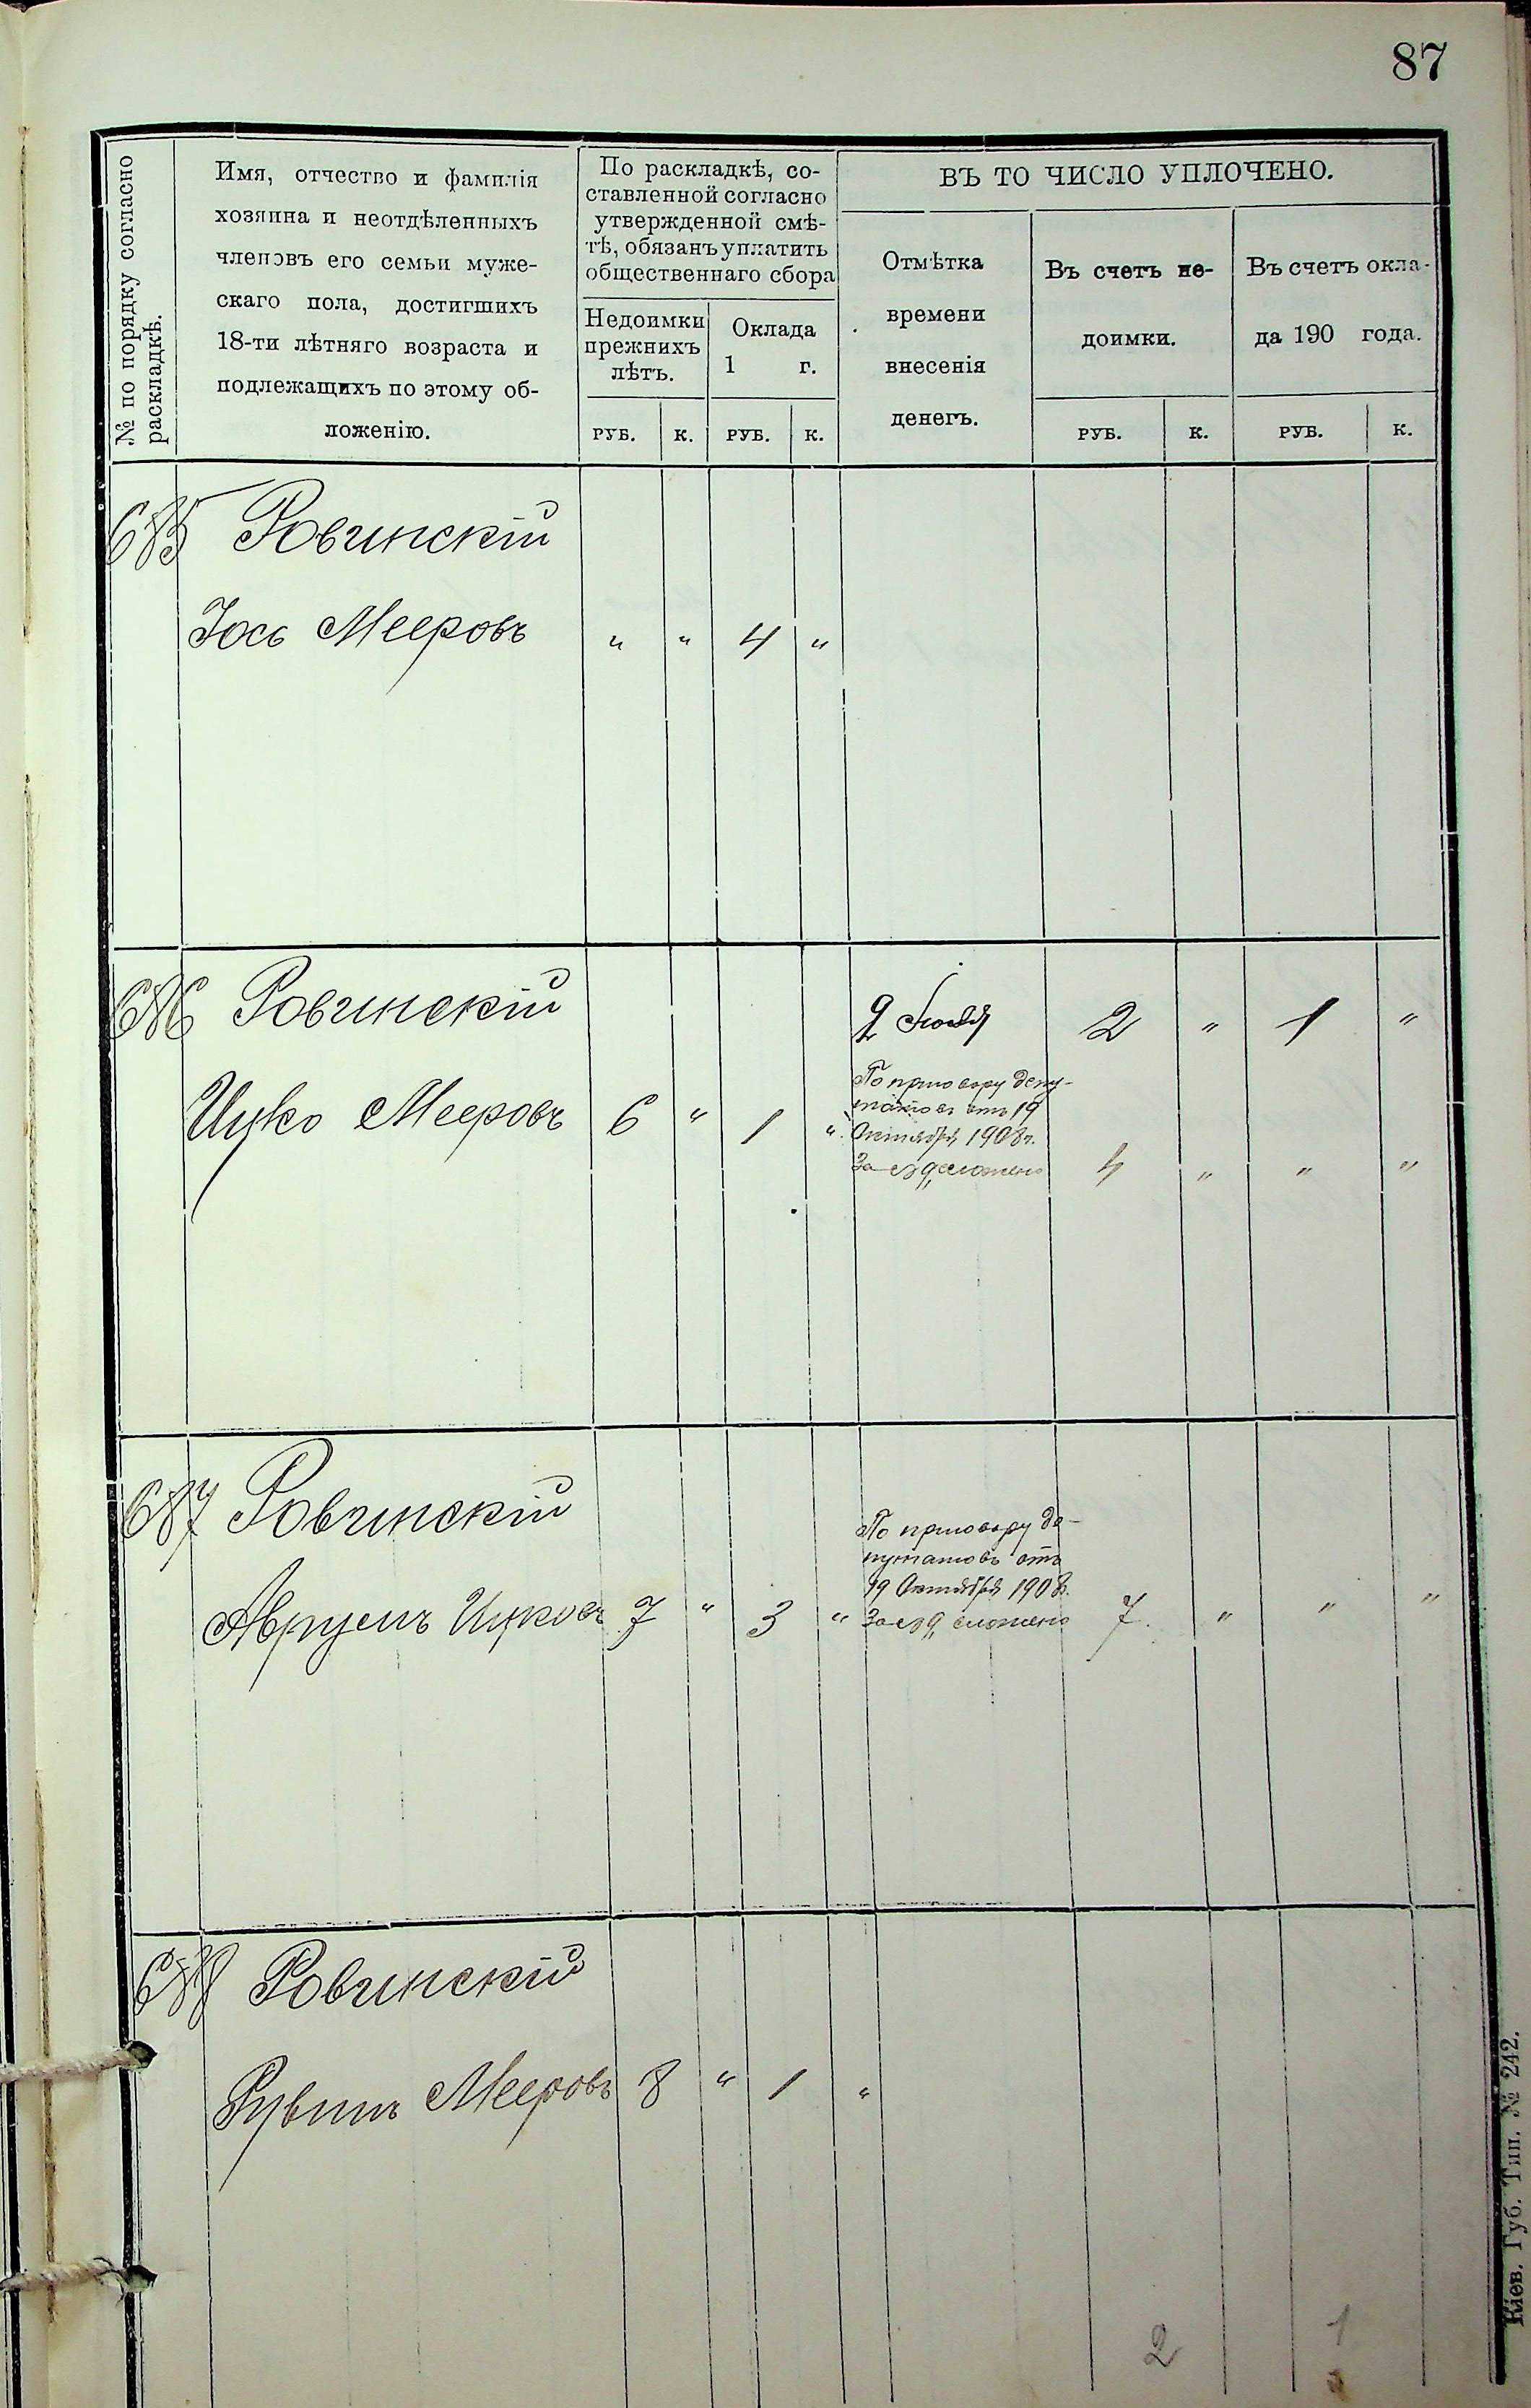 87
№ по порядку согласно
раскладкѣ.
Имя, отчество и фамилія
хозяина и неотдѣленныхъ
членовъ его семьи муже-
скаго пола, достигшихъ
18-ти лѣтняго возраста и
подлежащихъ по этому об-
ложенію.
По раскладкѣ, со-
ставленной согласно
утвержденной смѣ-
тѣ, обязанъ уплатить
общественнаго сбора
Недоимки
прежнихъ
лѣтъ.
Оклада
1 г.
ВЪ ТО ЧИСЛО УПЛОЧЕНО.
Отмѣтка
времени
внесенія
денегъ.
Въ счетъ не-
доимки.
Въ счетъ окла-
да 190 года.
РУБ. К. РУБ. К. РУБ. К. РУБ. К.
685 Ровинскій
Іось Мееровъ " " 4 "
686 Ровинскій
9 Іюля 2 " 1 "
Ицко Мееровъ 6 " 1 "
По приговору депу-
татовъ отъ 19
Октября 1908 г.
За сложено 4 " " "
687 Ровинскій
Аврумъ Ицковъ 7 " 3 "
По приговору де-
путатовъ отъ
19 Октября 1908.
За сложено 7 " " "
688 Ровинскій
Рувинъ Мееровъ 8 " 1 "
2 1
Кіев. Губ. Тип. № 242.